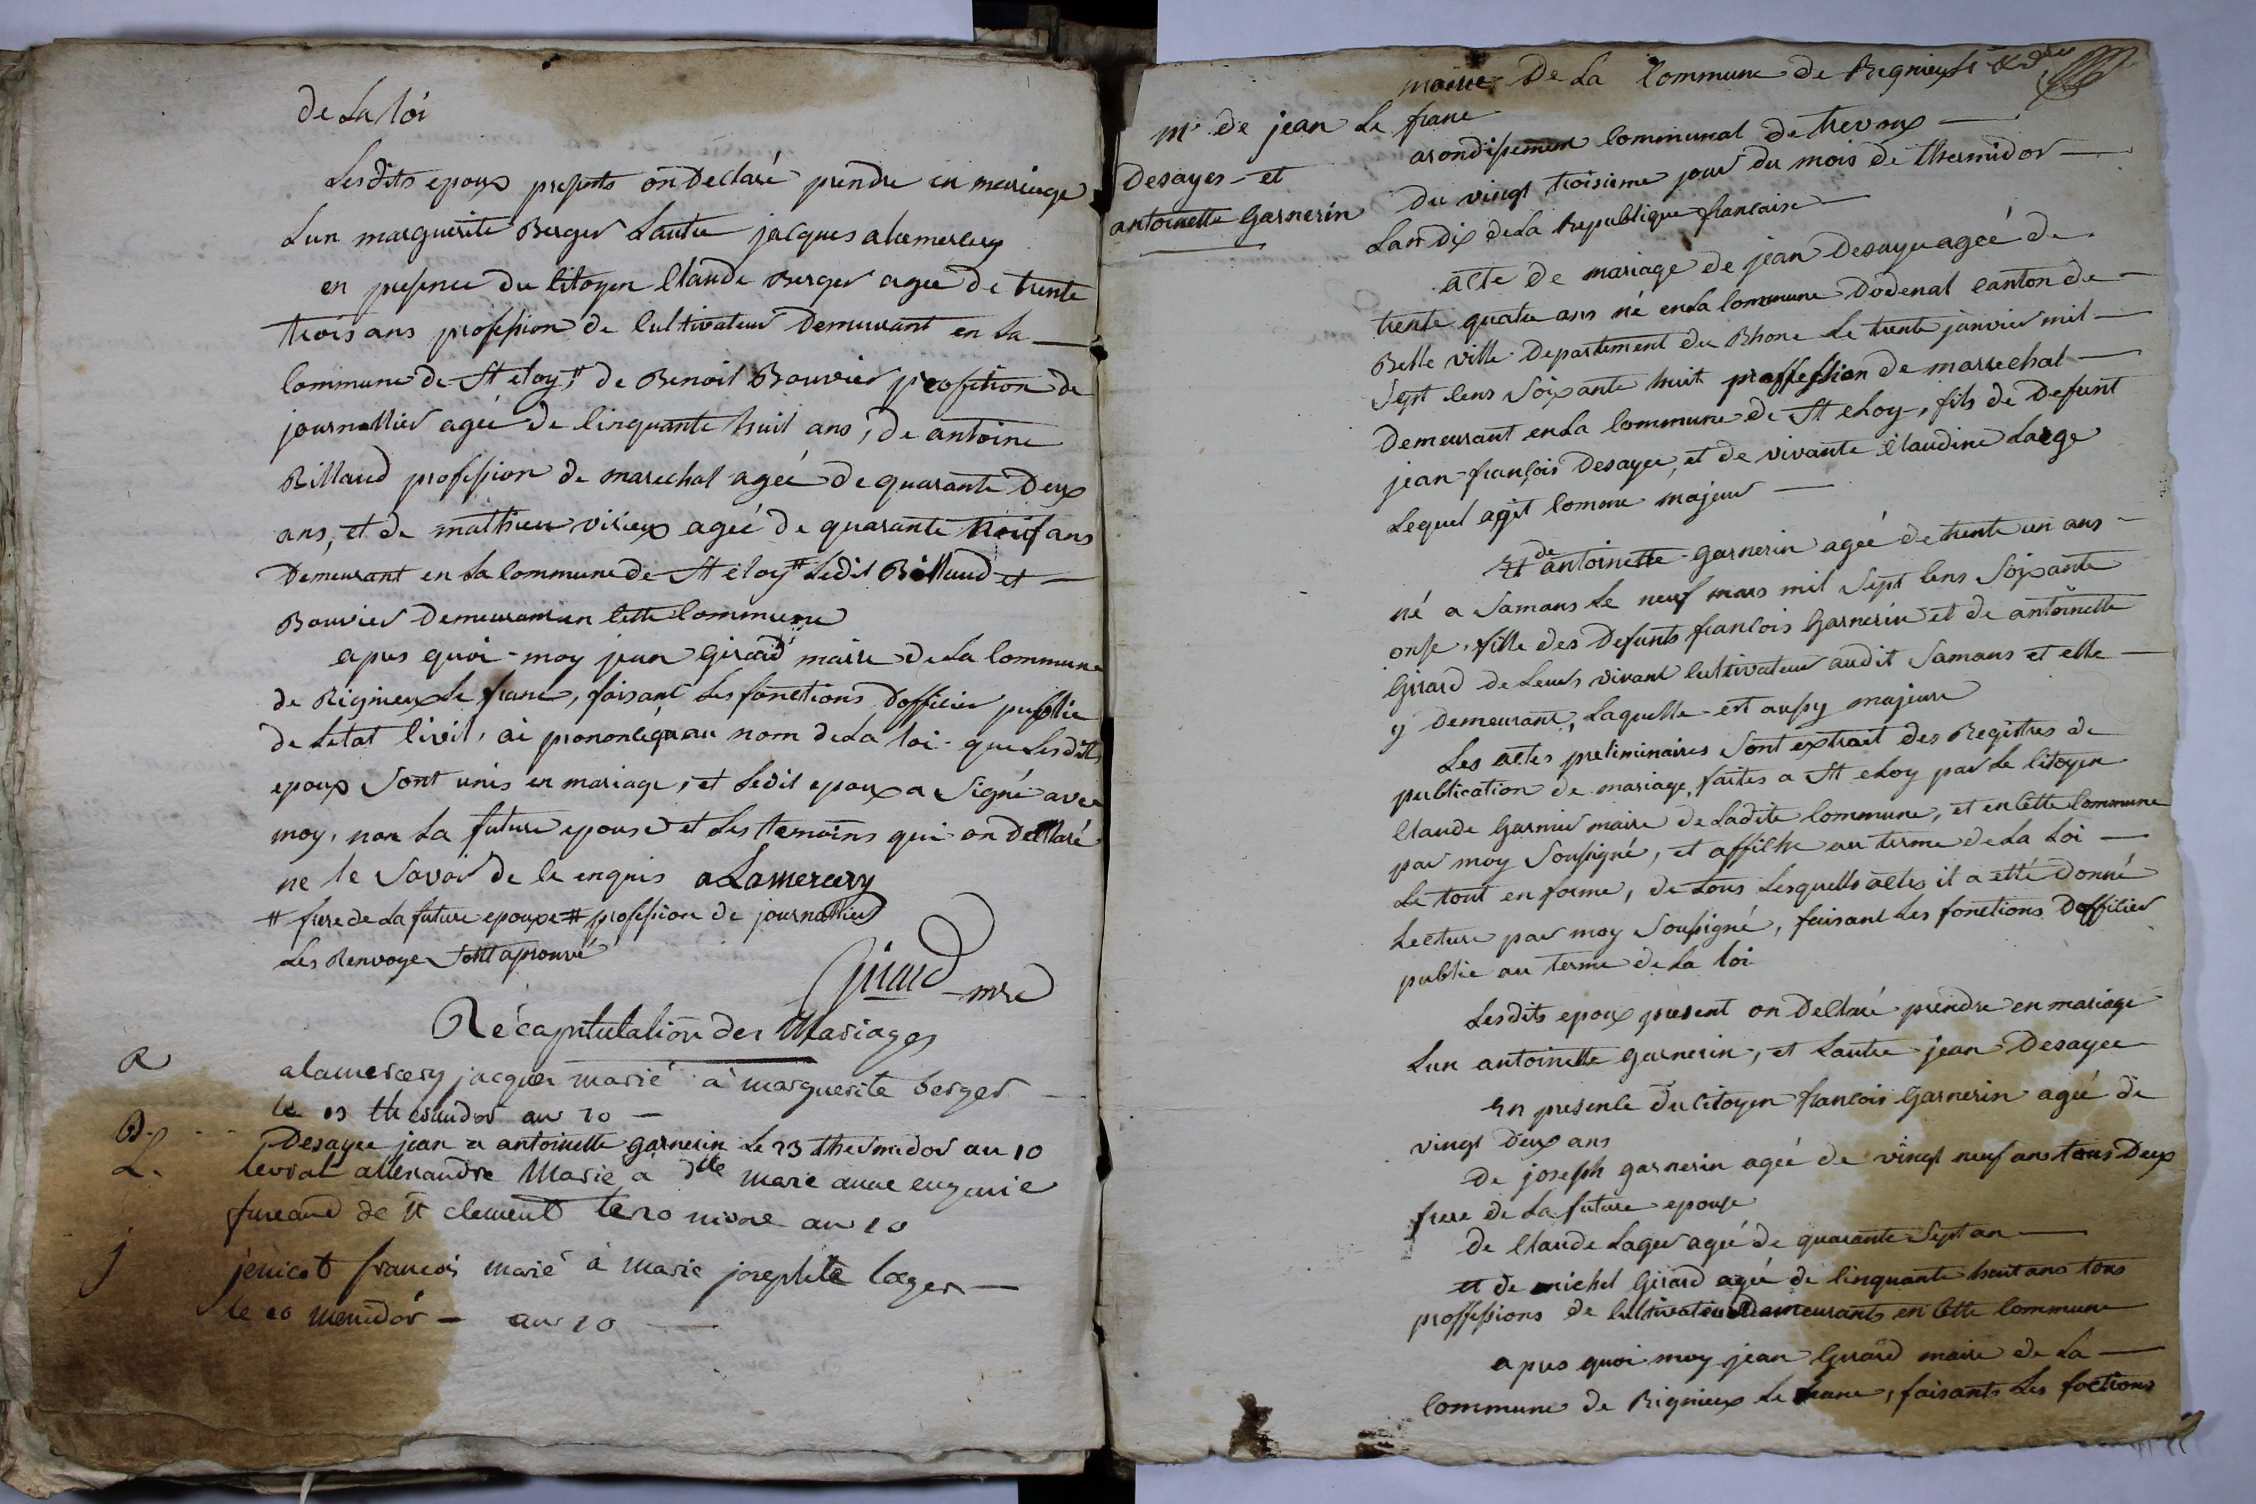 de La loi
Lesdits epoux presents on Declaré prendre en mariage
Lun marguerite Berger Lautre jacques alamercery
en presence du Citoyen Claude Berger agée de trente
trois ans profession de Cultivateur Demeurant en La
Commune de St eloy # de Benoit Bouvier profession de
journallier agée de Cinquante huit ans, de antoine
Billaud profession de marechal agée de quarante Deux
ans, et de mathieu virieux agée de quarante neuf ans
Demeurant en La Commune de St eloy # Ledit Billaud et
Bouvier Demeurans en Cette Commune
apres quoi moy jean Girard maire de La Commune
de Rignieux Le franc, faisant Les fonctions Dofficier public
de Letat Civil, ai prononcé qu'au nom de La loi que Lesdits
epoux Sont unis en mariage, et Ledit epoux a Signé avec
moy, non La future epouse et Les temoins qui on Declaré
ne le Savoir de le enquis aLamercery
# frere de La future epouse # profession de journallier
Les Renvoye Sont aprouvé
Girard mre
Récapitulation des Mariages
a alamercery jacques marié à marguerite berger
le 03 thermidor an 10
D. Desayee jean a antoinette garnerin Le 23 thermidor an 10
L. levrat allexandre Marié à dlle marie anne eugenie
fureaud de st clement le 20 nivose an 10
j jenicot francois marié à marie josephte loger
le 20 messidor an 10
maire De La Commune de Rignieux Le
franc
M. de jean
Desayes et
antoinette Garnerin
arondissemen Communal de trevoux
Du vingt troisieme jour du mois de thermidor
Lan dix de La Republique francaise
acte de mariage de jean Desayee agée de
trente quatre ans né en La Commune Dodenat canton de
Belle ville Departement du Rhone Le trente janvier mil
Sept Cens Soixante huit proffession de marrechal
Demeurant en La Commune de St eLoy, fils de Defunt
jean-françois Desayee, et de vivante Claudine Large
Lequel agit Comme majeur
Et de antoinette Garnerin agée de trente un ans
né a Samans Le neuf mars mil Sept Cens Soixante
onse, fille des Defunts francois Garnerin et de antoinette
Girard de Leurs vivant Cultivateur audit Samans et elle
y Demeurant, Laquelle est aussy majeure
Les actes preliminaires Sont extrait des Registres de
publication de mariage, faites a St eLoy par Le Citoyen
Claude Garnier maire de Ladite Commune, et en Cette Commune
par moy Soussigné, et affiche au terme de La Loi
Le tout en forme, de tous Lesquells actes il a etté Donné
Lecture par moy Soussigné, faisant Les fonctions Dofficier
public au terme de La loi
Lesdits epoux present on Declaré prendre en mariage
Lun antoinette garnerin, et Lautre jean Desayee
en presence du Citoyen francois Garnerin agée de
vingt Deux ans
De joseph garnerin agée de vingt neuf ans tous Deux
frere de La future epouse
De Claude Lager agée de quarante Sept an
et de michel Girard agée de Cinquante huit ans tous
proffesions de Cultivateur Demeurants en Cette Commune
apres quoi moy jean Girard maire de La
Commune de Rignieux Le franc, faisants Les foctions